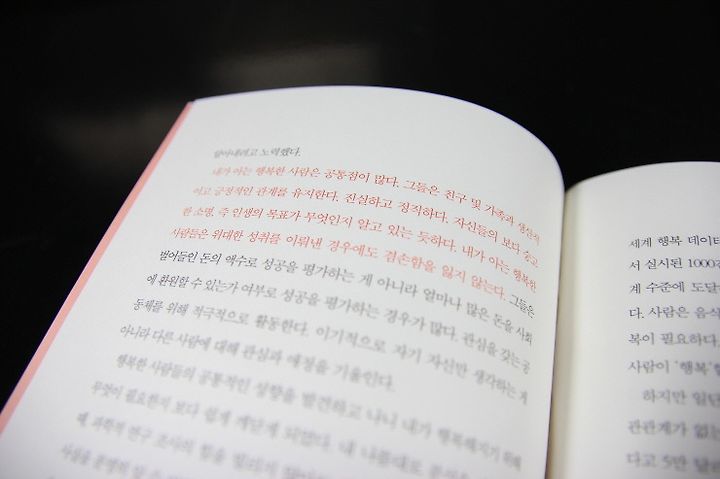 알아내려고 노력했다.
내가 아는 행복한 사람은 공통점이 많다. 그들은 친구 및 가족과 생산적
이고 긍정적인 관계를 유지한다. 진실하고 정직하다. 자신들의 보다 숭고
한 소명, 즉 인생의 목표가 무엇인지 알고 있는 듯하다. 내가 아는 행복한
사람들은 위대한 성취를 이뤄낸 경우에도 겸손함을 잃지 않는다. 그들은
벌어들인 돈의 액수로 성공을 평가하는 게 아니라 얼마나 많은 돈을 사회
에 환원할 수 있는가 여부로 성공을 평가하는 경우가 많다. 관심을 갖는 공
동체를 위해 적극적으로 활동한다. 이기적으로 자기 자신만 생각하는 게
아니라 다른 사람에 대해 관심과 애정을 기울인다.
행복한 사람들의 공통적인 성향을 발견하고 나니 내가 행복해지기 위해
무엇이 필요한지 보다 쉽게 깨닫게 되었다. 내 나름대로
때, 과학적 연구 조사의 힘을 빌려
세계 행복 데이터
서 실시된 1000
계 수준에 도달
다. 사람은 음식
복이 필요하다.
사람이 '행복'
하지만 일단
관관계가 없는
다고 5만 달러